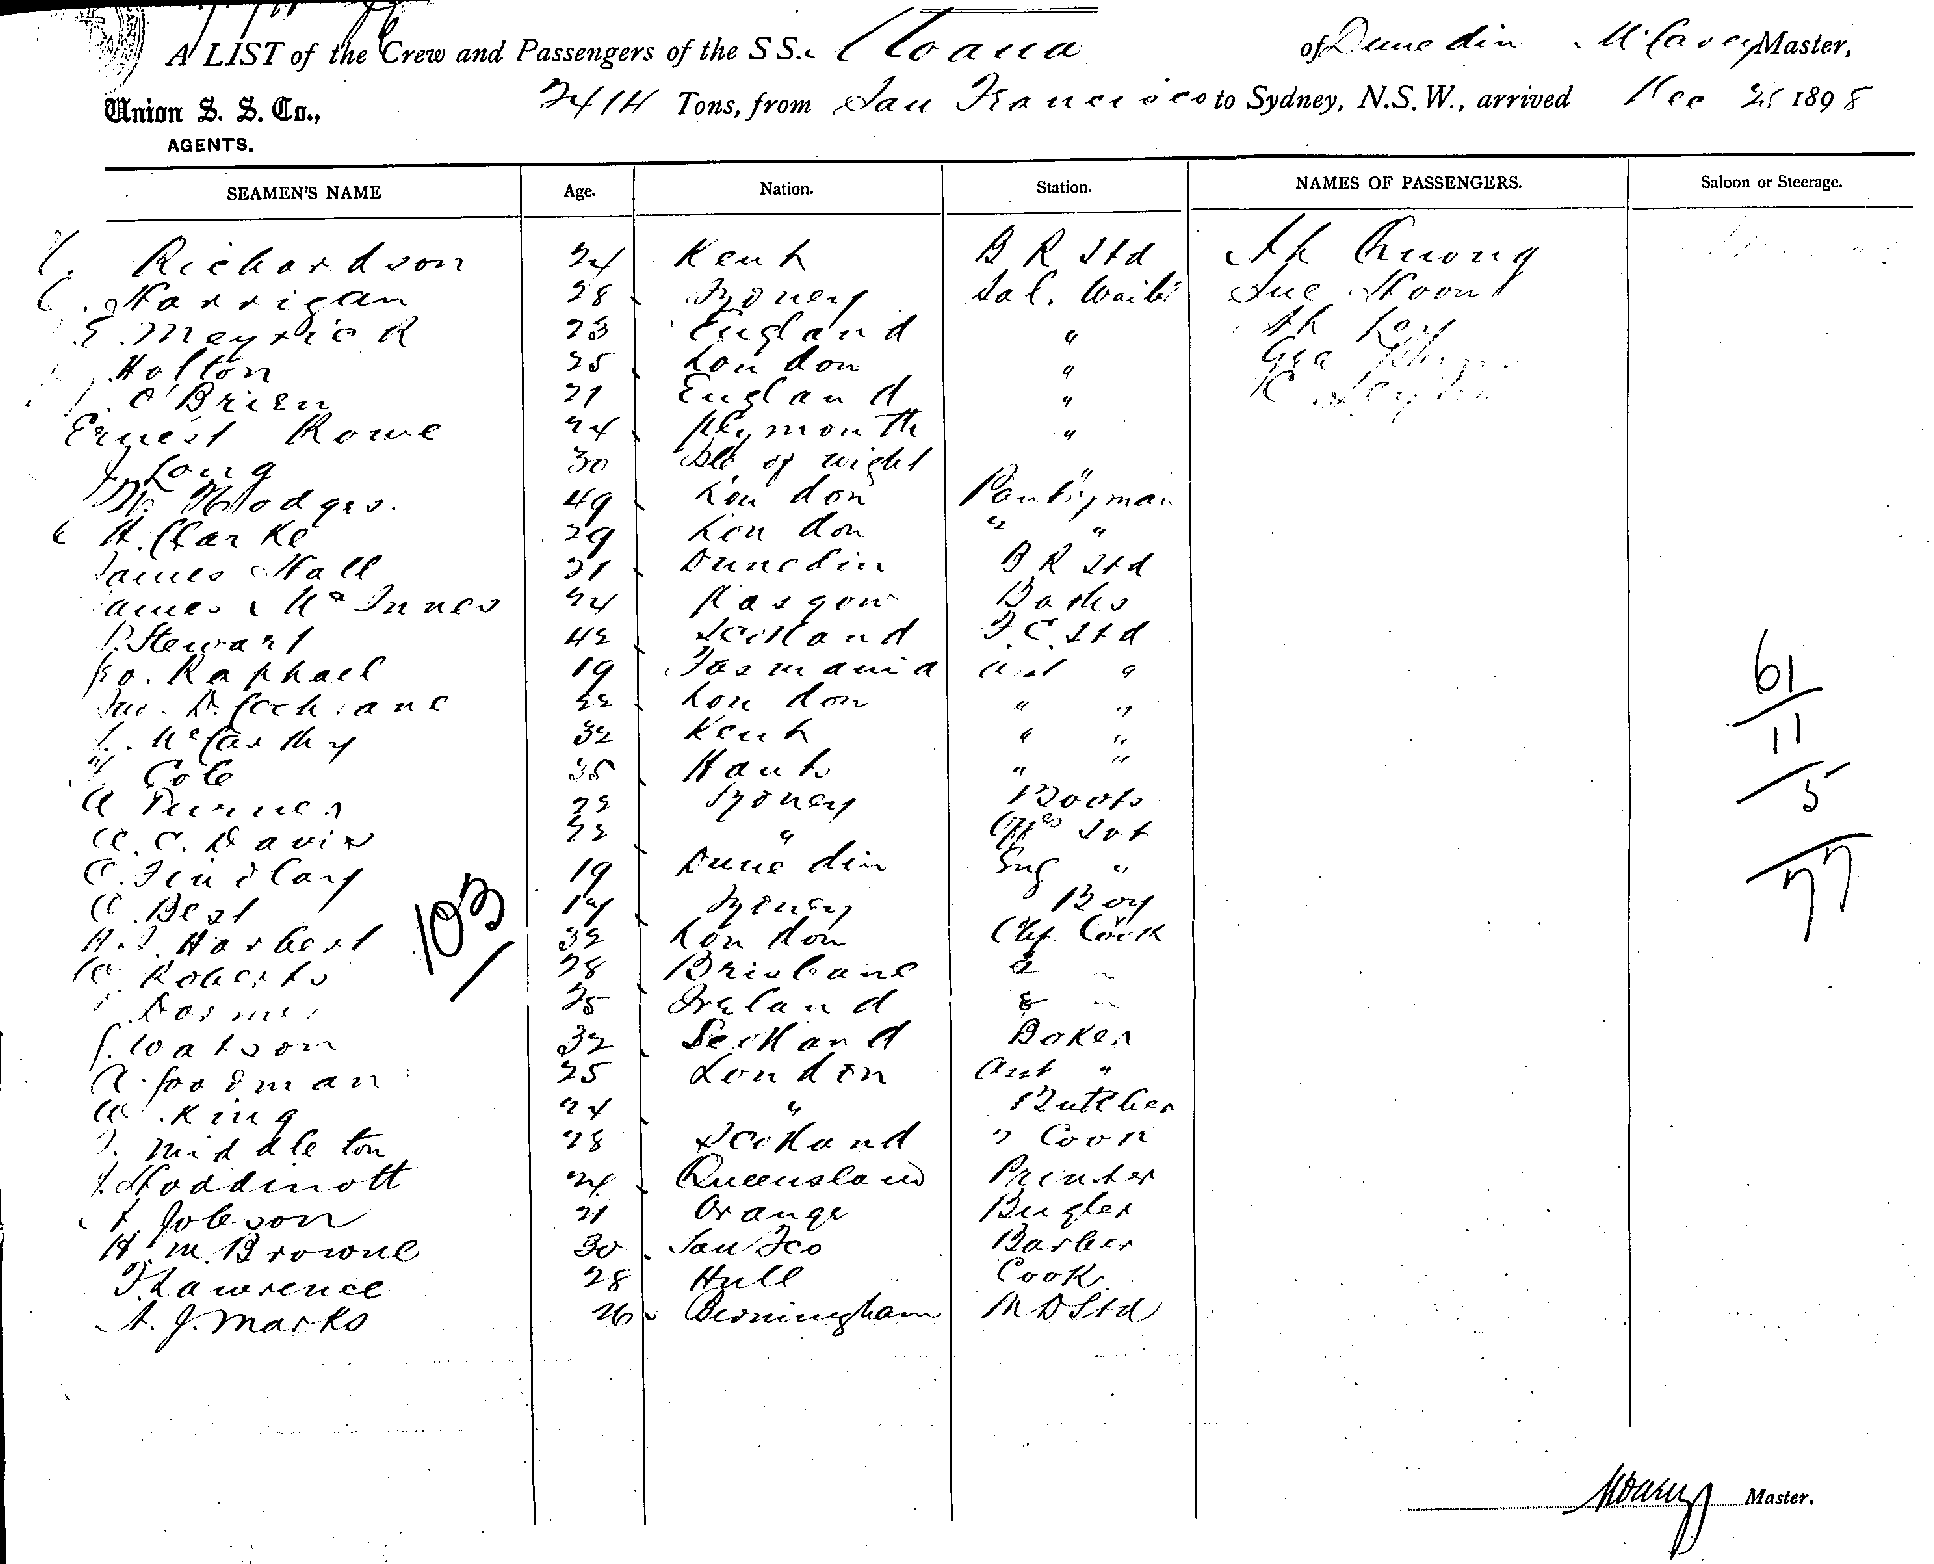 A LIST of the Crew and Passengers of the SS. Moana of Dunedin M Carey Master,
Union S. S. Co., 2414 Tons, from San Francisco to Sydney, N.S.W., arrived Dec 1898
AGENTS.
SEAMEN'S NAME Age. Nation. Station. NAMES OF PASSENGERS. Saloon or Steerage.
Richardson 24 Kent B R Std Ah Quong
Harrigan 28 Sydney Sal. Waiter Sue Hoon
E. Meyrick 23 England " Ah
Holton 25 London " Geo
O'Brien 21 England " K
Ernest Rowe 24 Plymouth "
J Long 30 Isle of Wight "
W. Hodges. 49 London Pantryman
H. Clarke 29 London " "
James Hall 31 Dunedin B R Std
James McInnes 24 Glasgow Baths
P. Stewart 42 Scotland F. C. Std
Geo. Raphael 19 Tasmania Asst "
Jas. D. Cochrane 22 London " "
McCarthy 32 Kent " "
Cole 35 Hants " "
A Turner 22 Sydney Boots
A. C. Davis 22 " Offrs Svt
C. Findlay 19 Dunedin Eng "
C. Best 17 Sydney Boy
H. J. Harbert 32 London Chf. Cook
W. Roberts 28 Brisbane 2 "
Dormer 25 Ireland 3 "
J. Watson 32 Scotland Baker
A. Goodman 25 London Asst "
W. King 24 " Butcher
J. Middleton 28 Scotland " Cook
J. Hoddinott 24 Queensland Printer
A. Jobson 21 Orange Bugler
H. M. Browne 30 San Fco Barber
F. Lawrence 28 Hull Cook
A. J. Marks 26 Birmingham M D Std
103
61
11
5
77
M Carey Master.